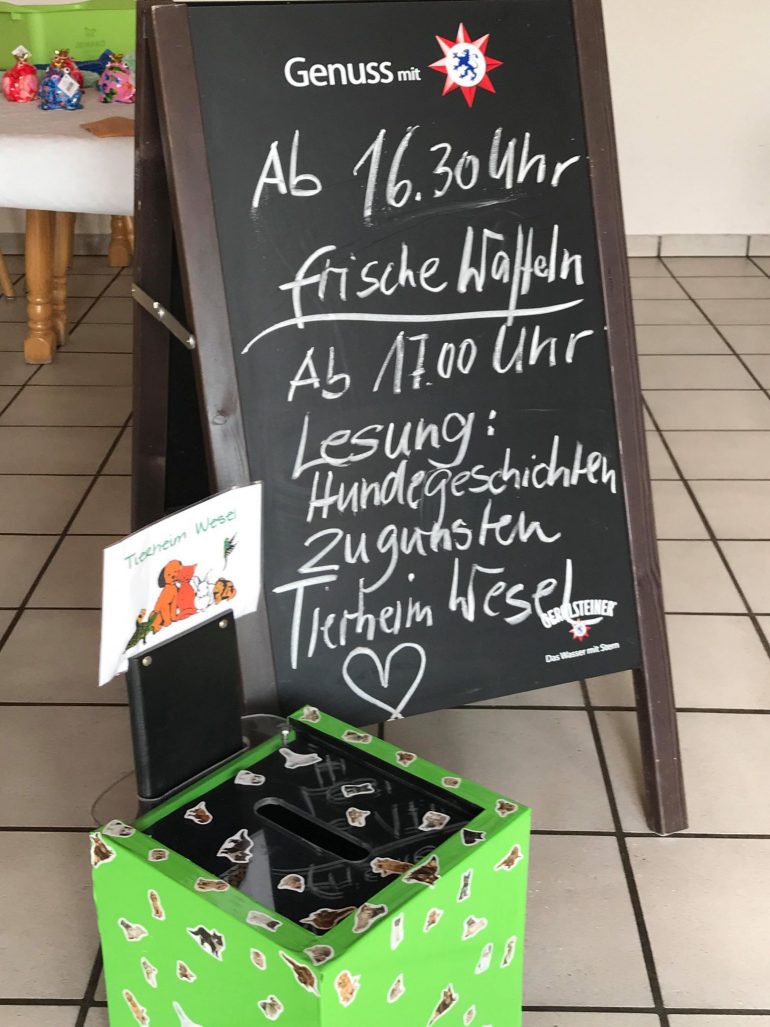 Genuss mit
Ab 16.30 Uhr
frische Waffeln
Ab 17.00 Uhr
Lesung:
Hundegeschichten
Zugunsten
Tierheim Wesel
GEROLSTEINER
Das Wasser mit Stern
Tierheim Wesel